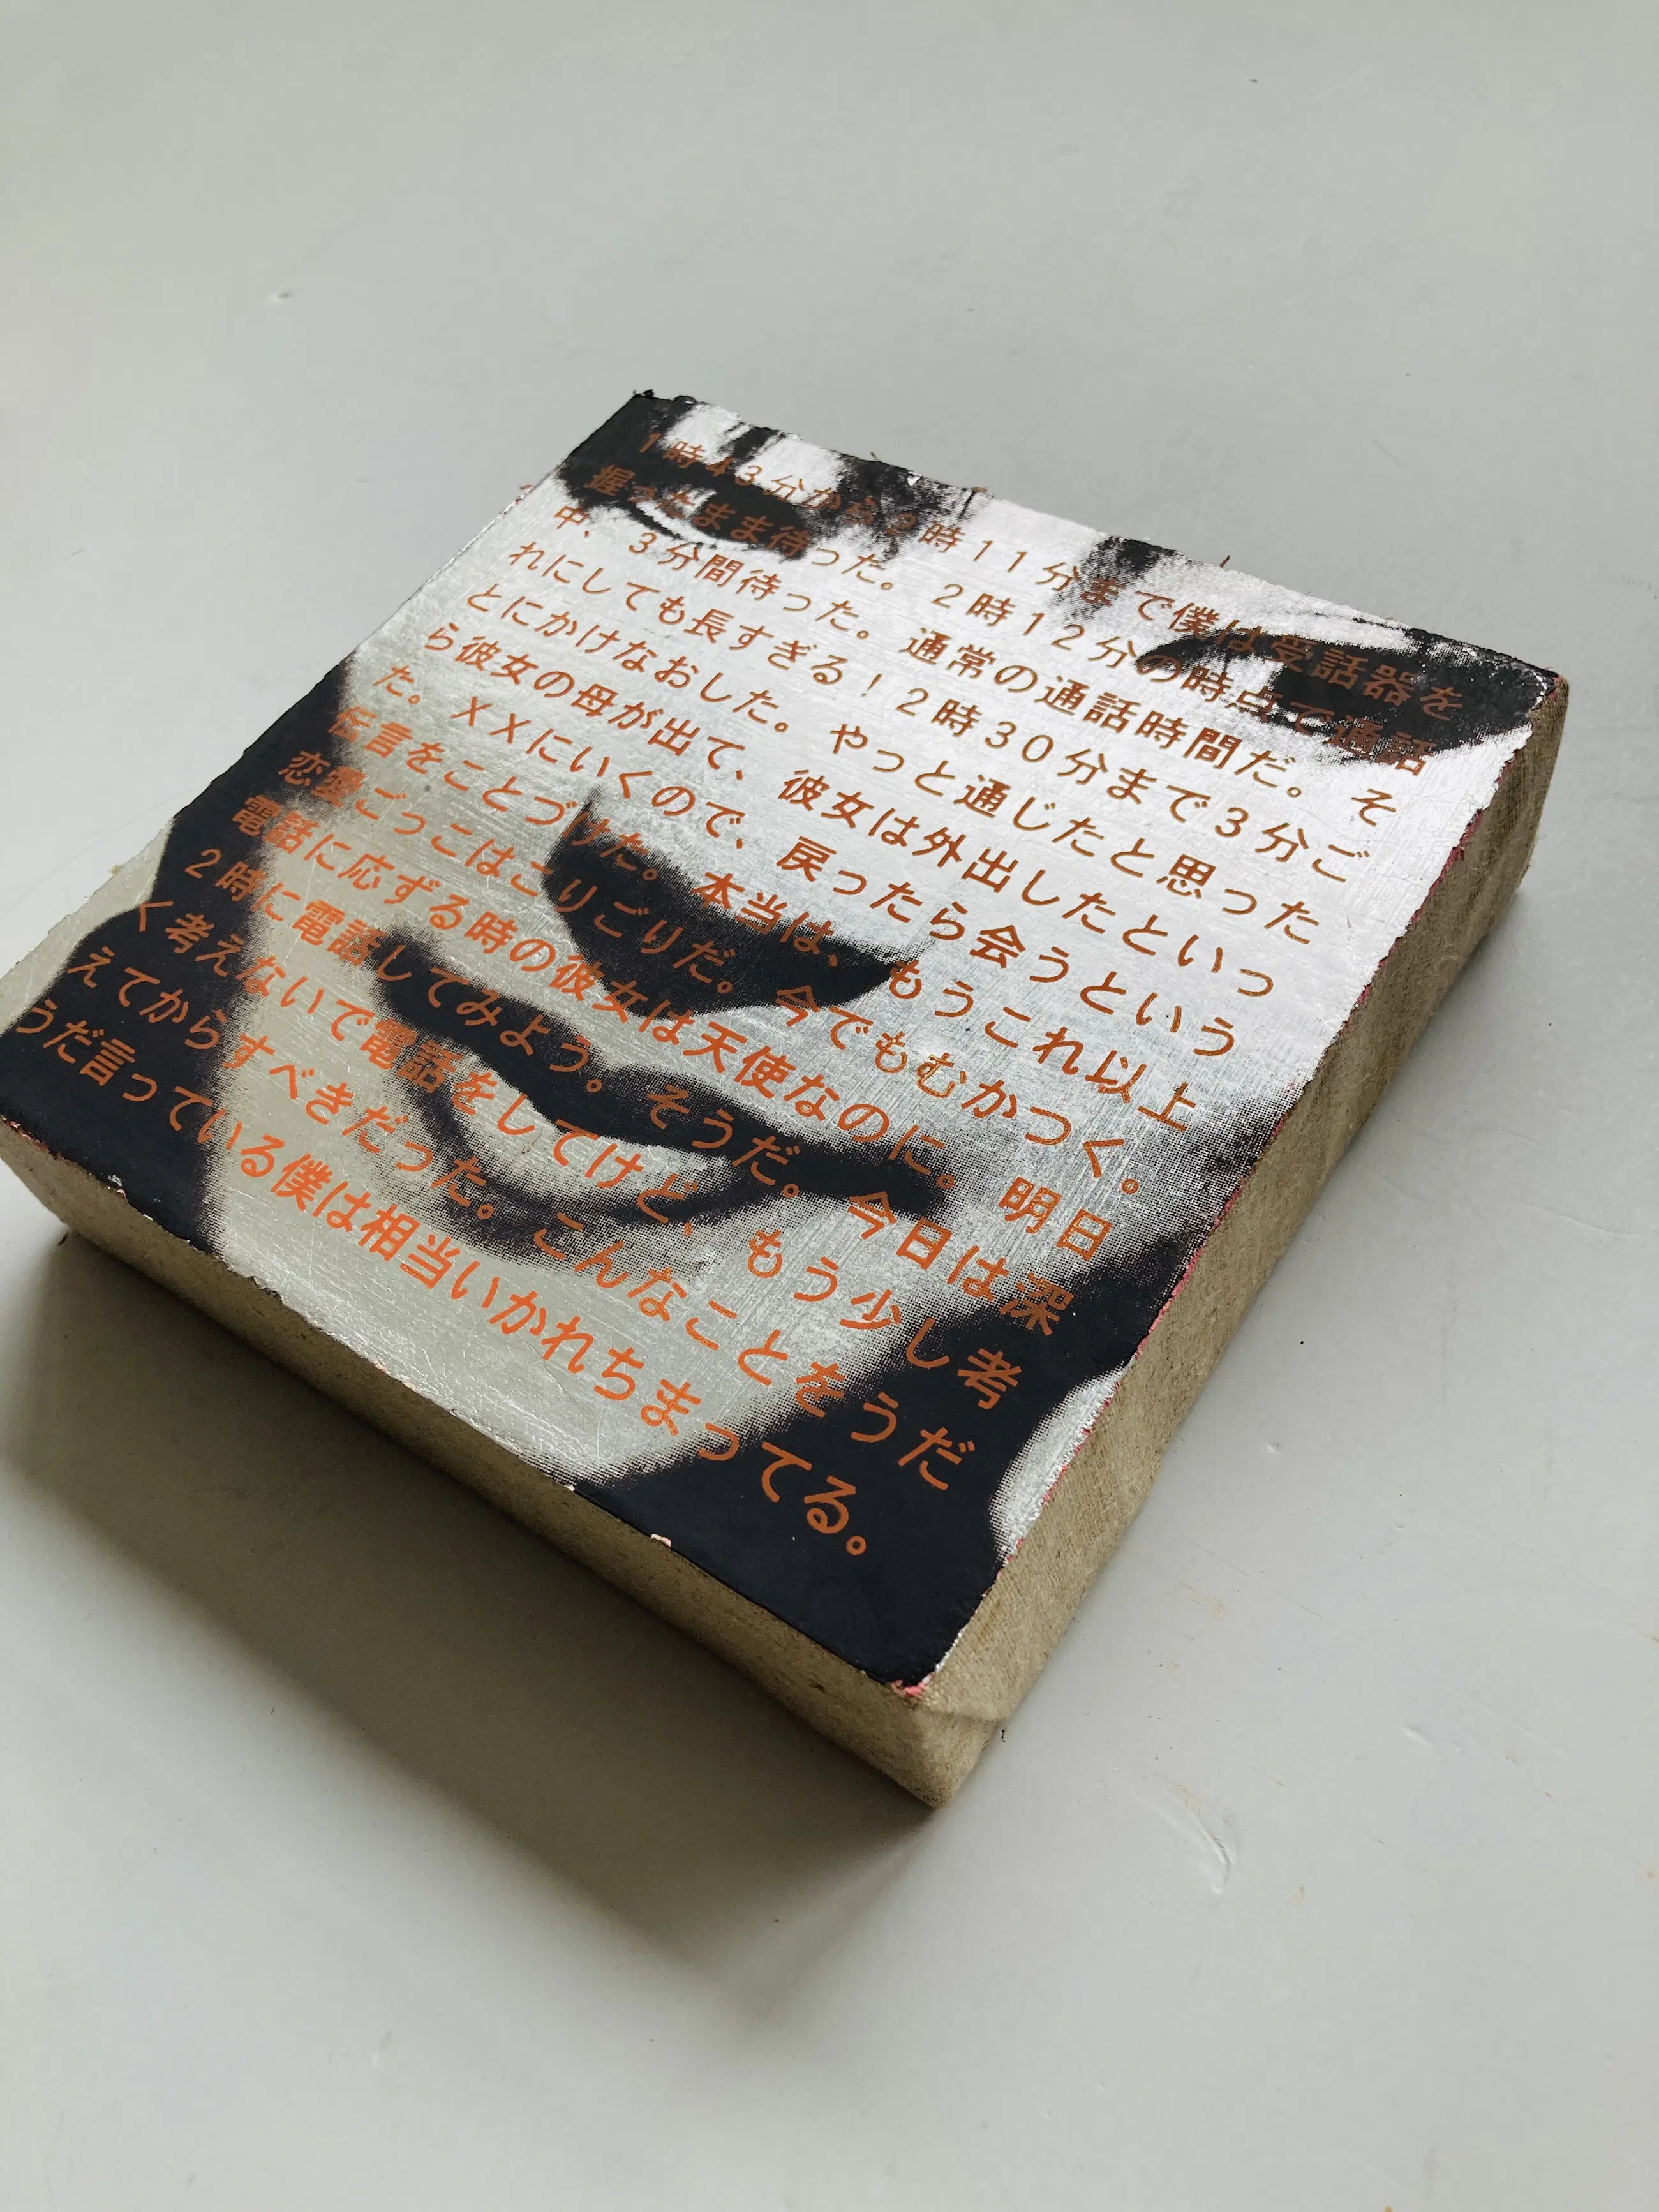 1時43分から2時11分まで僕は受話器を
握ったまま待った。2時12分の時点で通話
中、3分間待った。通常の通話時間だ。そ
れにしても長すぎる!2時30分まで3分ご
とにかけなおした。やっと通じたと思った
ら彼女の母が出て、彼女は外出したといっ
た。XXにいくので、戻ったら会うという
伝言をことづけた。本当は、もうこれ以上
恋愛ごっこはこりごりだ。今でもむかつく。
電話に応ずる時の彼女は天使なのに。明日
2時に電話してみよう。そうだ。今日は深
く考えないで電話をしてけど、もう少し考
えてからすべきだった。こんなことをうだ
うだ言っている僕は相当いかれちまってる。